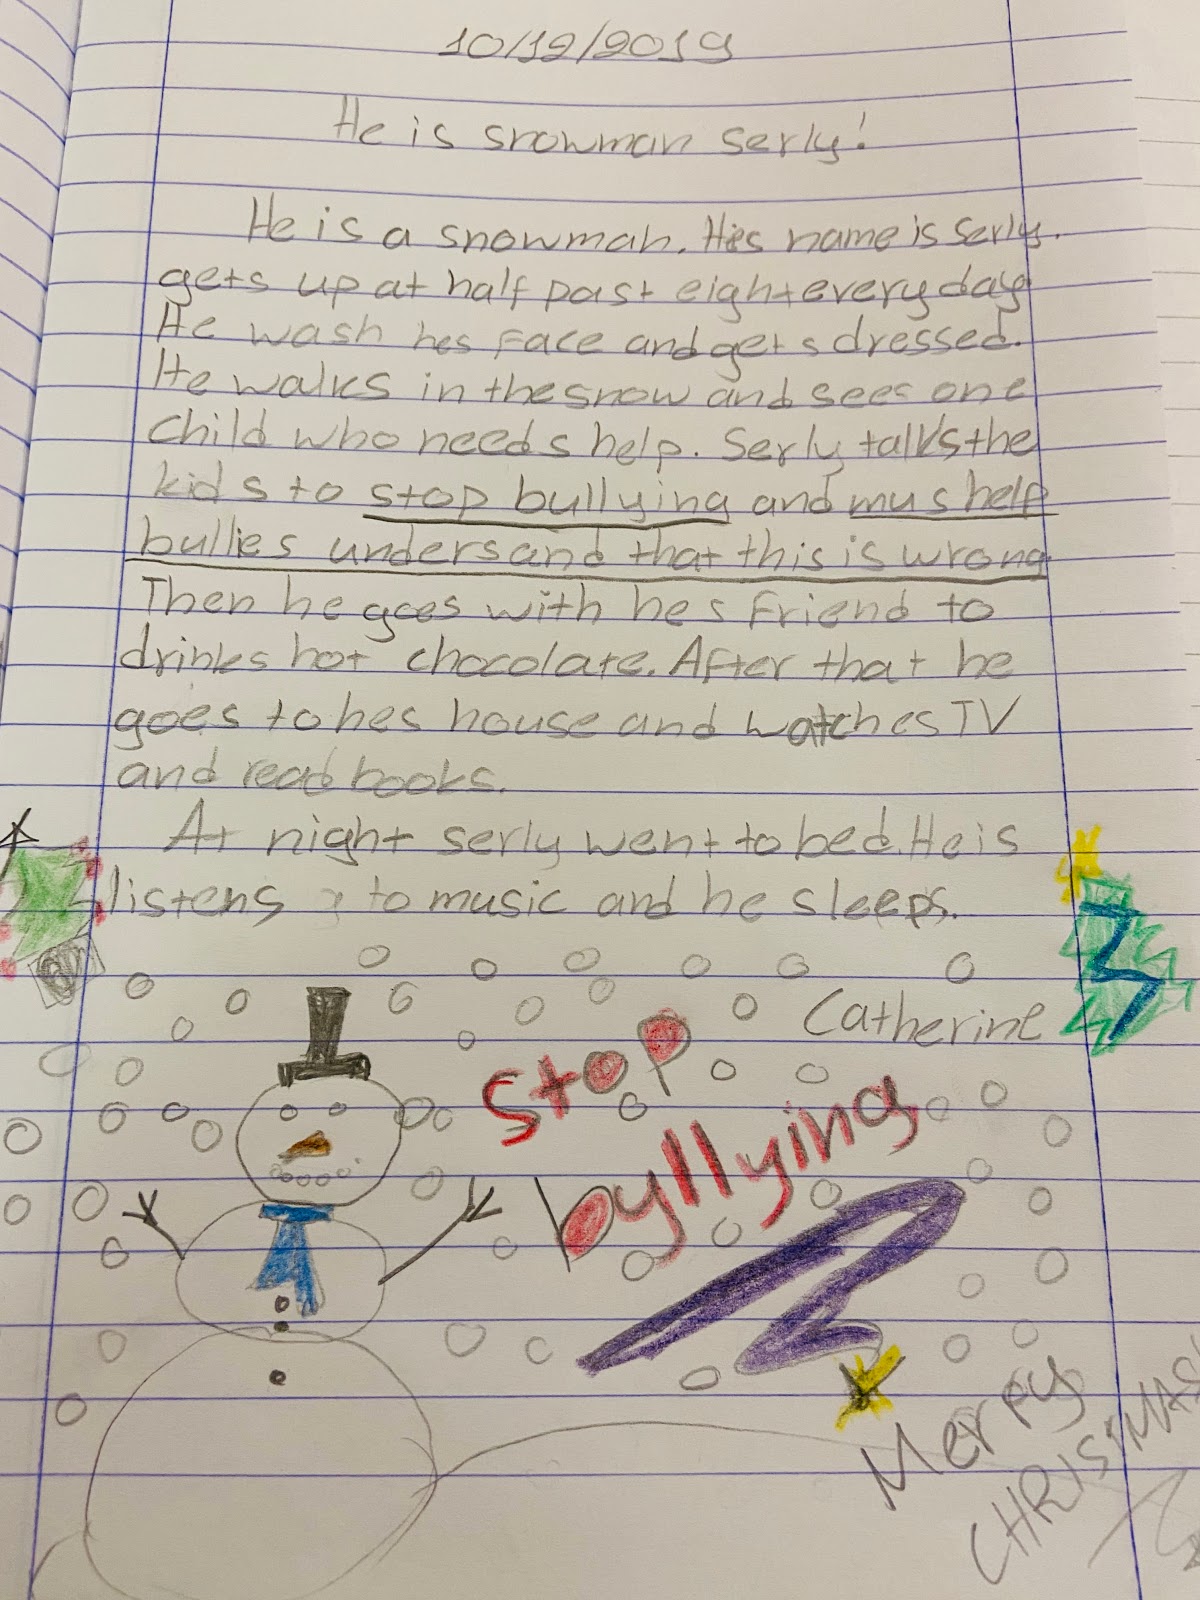 10/12/2019
He is snowman serly!
He is a snowman. His name is Serly.
gets up at half past eight every day
He wash hes face and gets dressed.
He walks in the snow and sees one
child who needs help. Serly talks the
kids to stop bullying and mus help
bullies undersand that this is wrong
Then he goes with hes friend to
drinks hot chocolate. After that he
goes to hes house and watches TV
and read books.
At night serly went to bed. He is
listens to music and he sleeps.
Catherine
Stop
byllying
Merry
CHRISTMAS